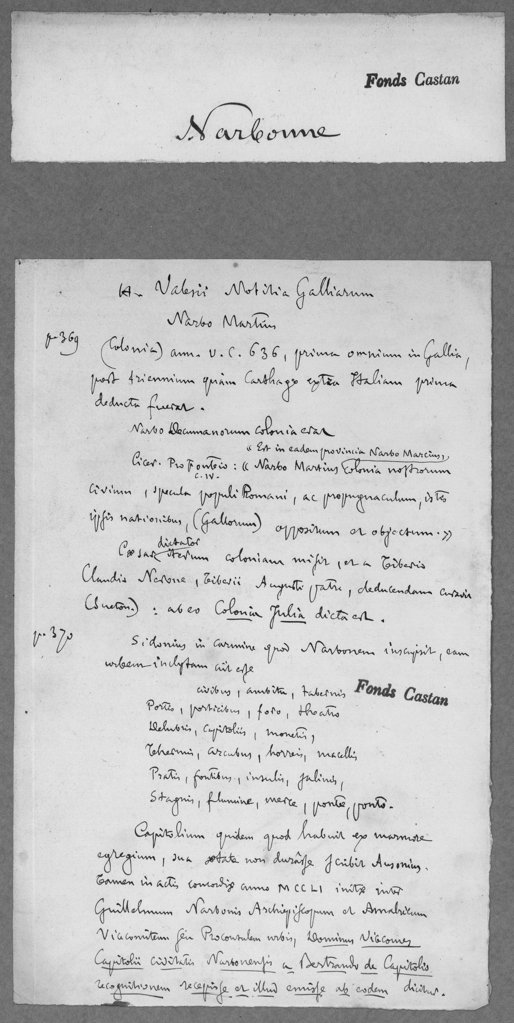 Fonds Castan
Narbonne
H. Valesii Notitia Galliarum
Narbo Martius
p. 369
(Colonia) ann. U. C. 636, prima omnium in Gallia,
post triennium quàm Carthago extra Italiam prima
deducta fuerat.
Narbo Decumanorum colonia erat
« Est in eadem provincia Narbo Marcius,
Cicer. Pro Fonteio : « Narbo Martius Colonia nostrorum
c. IV.
civium, specula populi Romani, ac propugnaculum, istis
ipsis nationibus, (Gallorum) oppositum et objectum. »
dictator
Cæsar iterum coloniam misit, et a Tiberio
Claudio Nerone, Tiberii Augusti patre, deducendam curavit
(Sueton.) : ab eo Colonia Julia dicta est.
p. 370
Sidonius in carmine quod Narbonem inscripsit, eam
urbem inclytam ait esse
civibus, ambitu, tabernis
Fonds Castan
Portis, porticibus, foro, theatro
Delubris, capitoliis, monetis,
Thermis, arcubus, horreis, macellis
Pratis, fontibus, insulis, salinis,
Stagnis, flumine, merce, ponte, ponto.
Capitolium quidem quod habuit ex marmore
egregium, sua ætate non durâsse scribit Ausonius.
Tamen in actis concordiæ anno MCCLI initæ inter
Guillelmum Narbonis Archiepiscopum et Amalricum
Vicecomitem seu Proconsulem urbis, Dominus Vicecomes
Capitolii civitatis Narbonensis a Bertrando de Capitolio
recognitionem recepisse et illud emisse ab eodem dicitur.